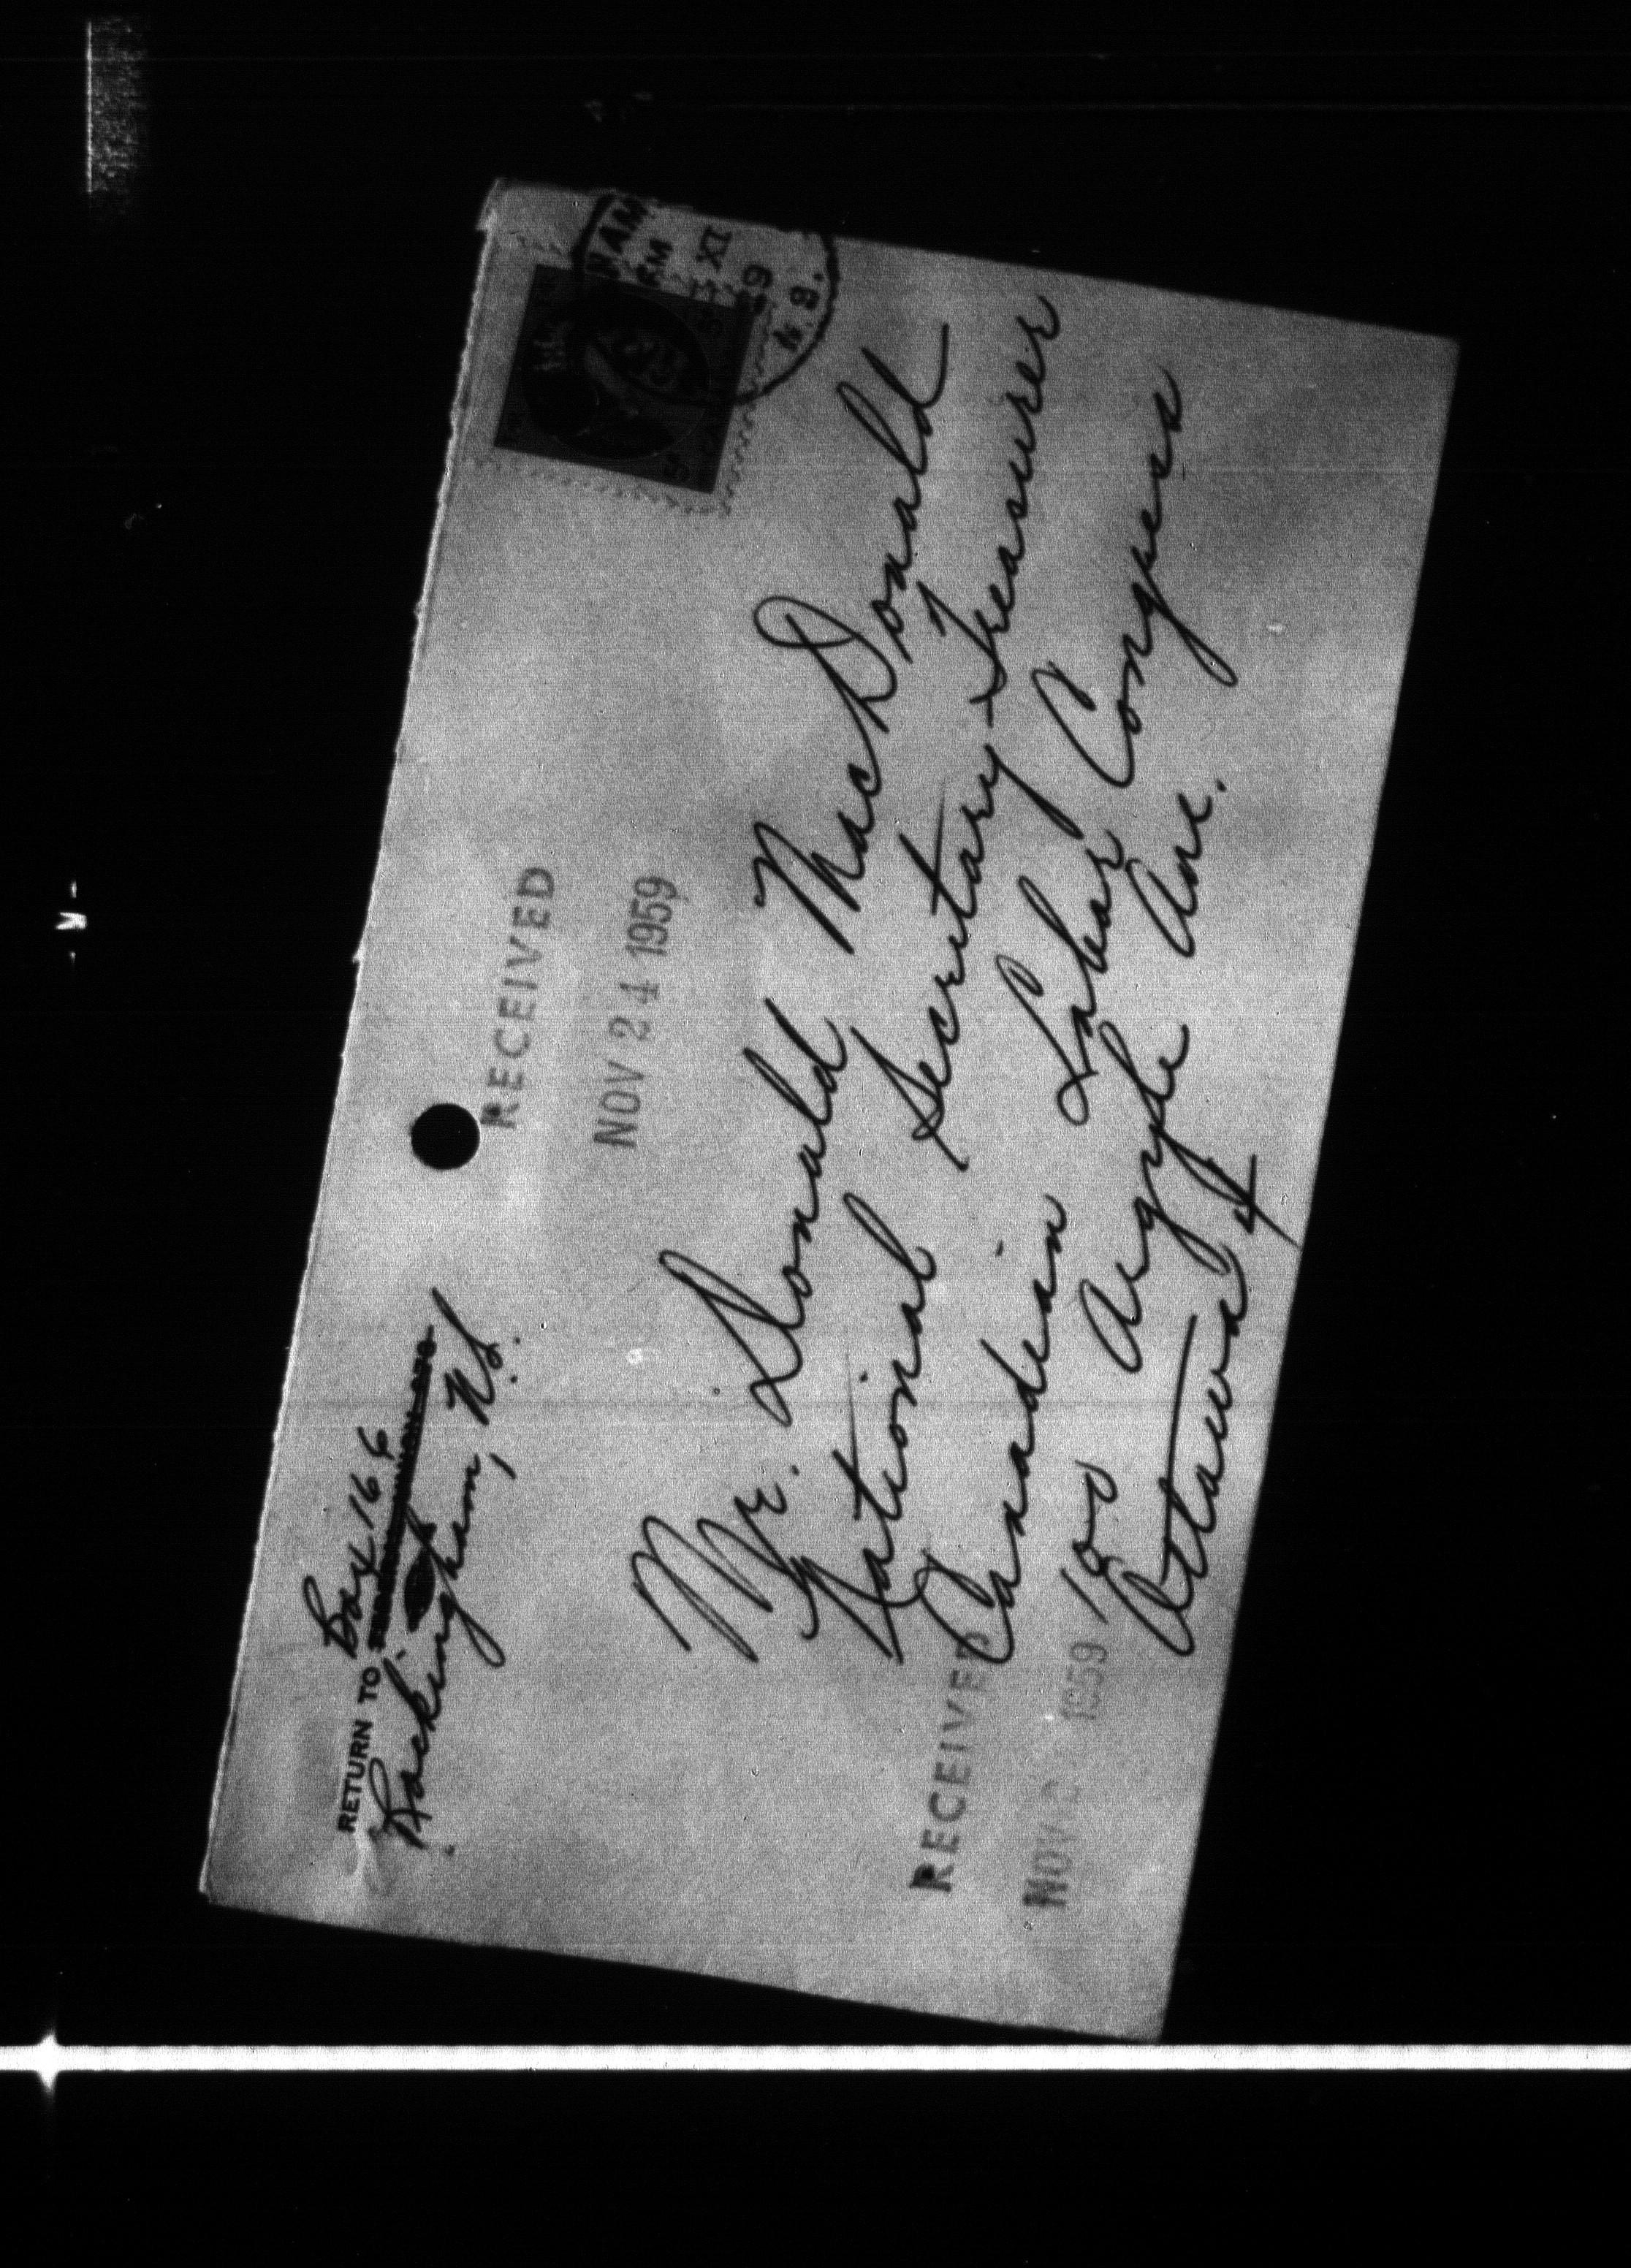 RETURN TO Box 166
Rockingham, N.S.
RECEIVED
NOV 24 1959
HAM
PM
XI
59
N.S.
5
Mr. Donald MacDonald
National Secretary-Treasurer
Canadian Labor Congress
100 Argyle Ave.
Ottawa 4
RECEIVED
NOV 1959